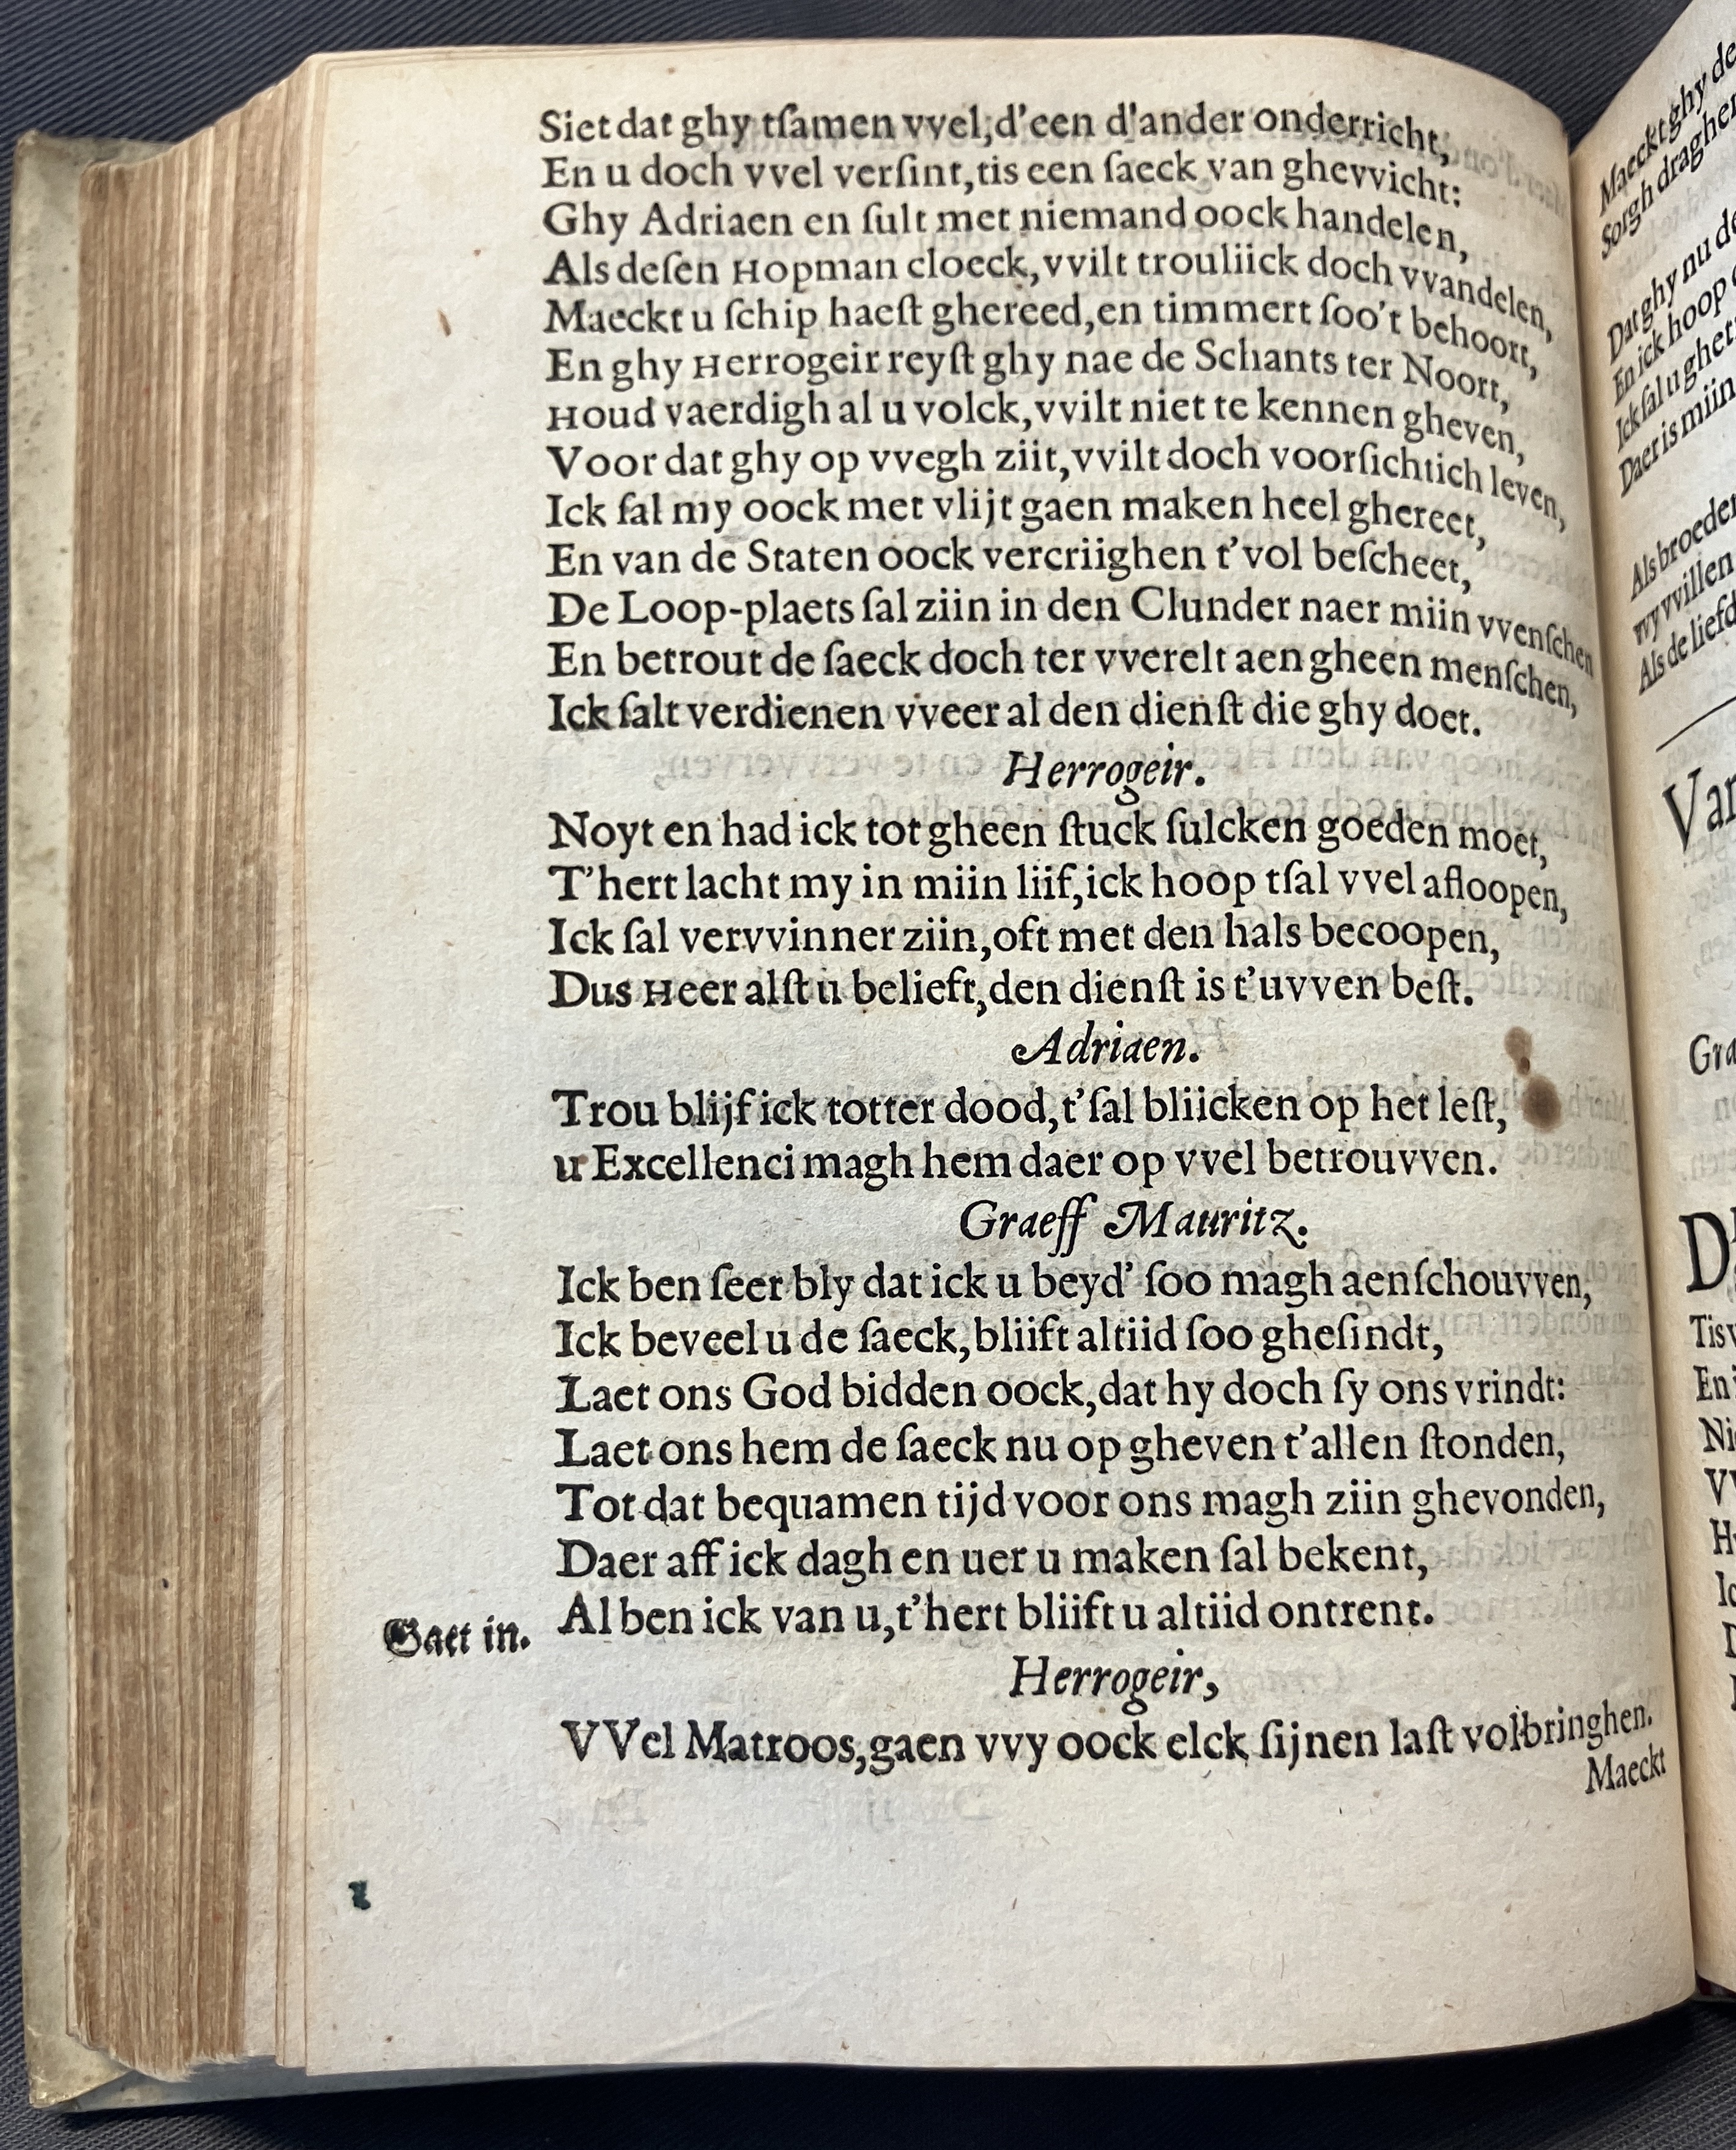 Siet dat ghy tſamen vvel, d'een d'ander onderricht,
En u doch vvel verſint, tis een ſaeck van ghevvicht:
Ghy Adriaen en ſult met niemand oock handelen,
Als deſen Hopman cloeck, vvilt trouliick doch vvandelen,
Maeckt u ſchip haeſt ghereed, en timmert ſoo't behoort,
En ghy Herrogeir reyſt ghy nae de Schants ter Noort,
Houd vaerdigh al u volck, vvilt niet te kennen gheven,
Voor dat ghy op vvegh ziit, vvilt doch voorſichtich leven,
Ick ſal my oock met vlijt gaen maken heel ghereet,
En van de Staten oock vercriighen t'vol beſcheet,
De Loop-plaets ſal ziin in den Clunder naer miin vvenſchen
En betrout de ſaeck doch ter vverelt aen gheen menſchen,
Ick ſalt verdienen vveer al den dienſt die ghy doet.
Herrogeir.
Noyt en had ick tot gheen ſtuck ſulcken goeden moet,
T'hert lacht my in miin liif, ick hoop tſal vvel afloopen,
Ick ſal vervvinner ziin, oft met den hals becoopen,
Dus Heer alſt u belieft, den dienſt is t'uvven beſt.
Adriaen.
Trou blijf ick totter dood, t'ſal bliicken op het leſt,
u Excellenci magh hem daer op vvel betrouvven.
Graeff Mauritz.
Ick ben ſeer bly dat ick u beyd' ſoo magh aenſchouvven,
Ick beveel u de ſaeck, bliift altiid ſoo gheſindt,
Laet ons God bidden oock, dat hy doch ſy ons vrindt:
Laet ons hem de ſaeck nu op gheven t'allen ſtonden,
Tot dat bequamen tijd voor ons magh ziin ghevonden,
Daer aff ick dagh en uer u maken ſal bekent,
Al ben ick van u, t'hert bliift u altiid ontrent.
Gaet in.
Herrogeir,
VVel Matroos, gaen vvy oock elck ſijnen laſt volbringhen.
Maeckt
Maeckt ghy
Sorgh
Dat ghy nu
En ick hoop
Ick ſal u
Daer is miin
Als broeder
vvy vvillen
Als de liefd